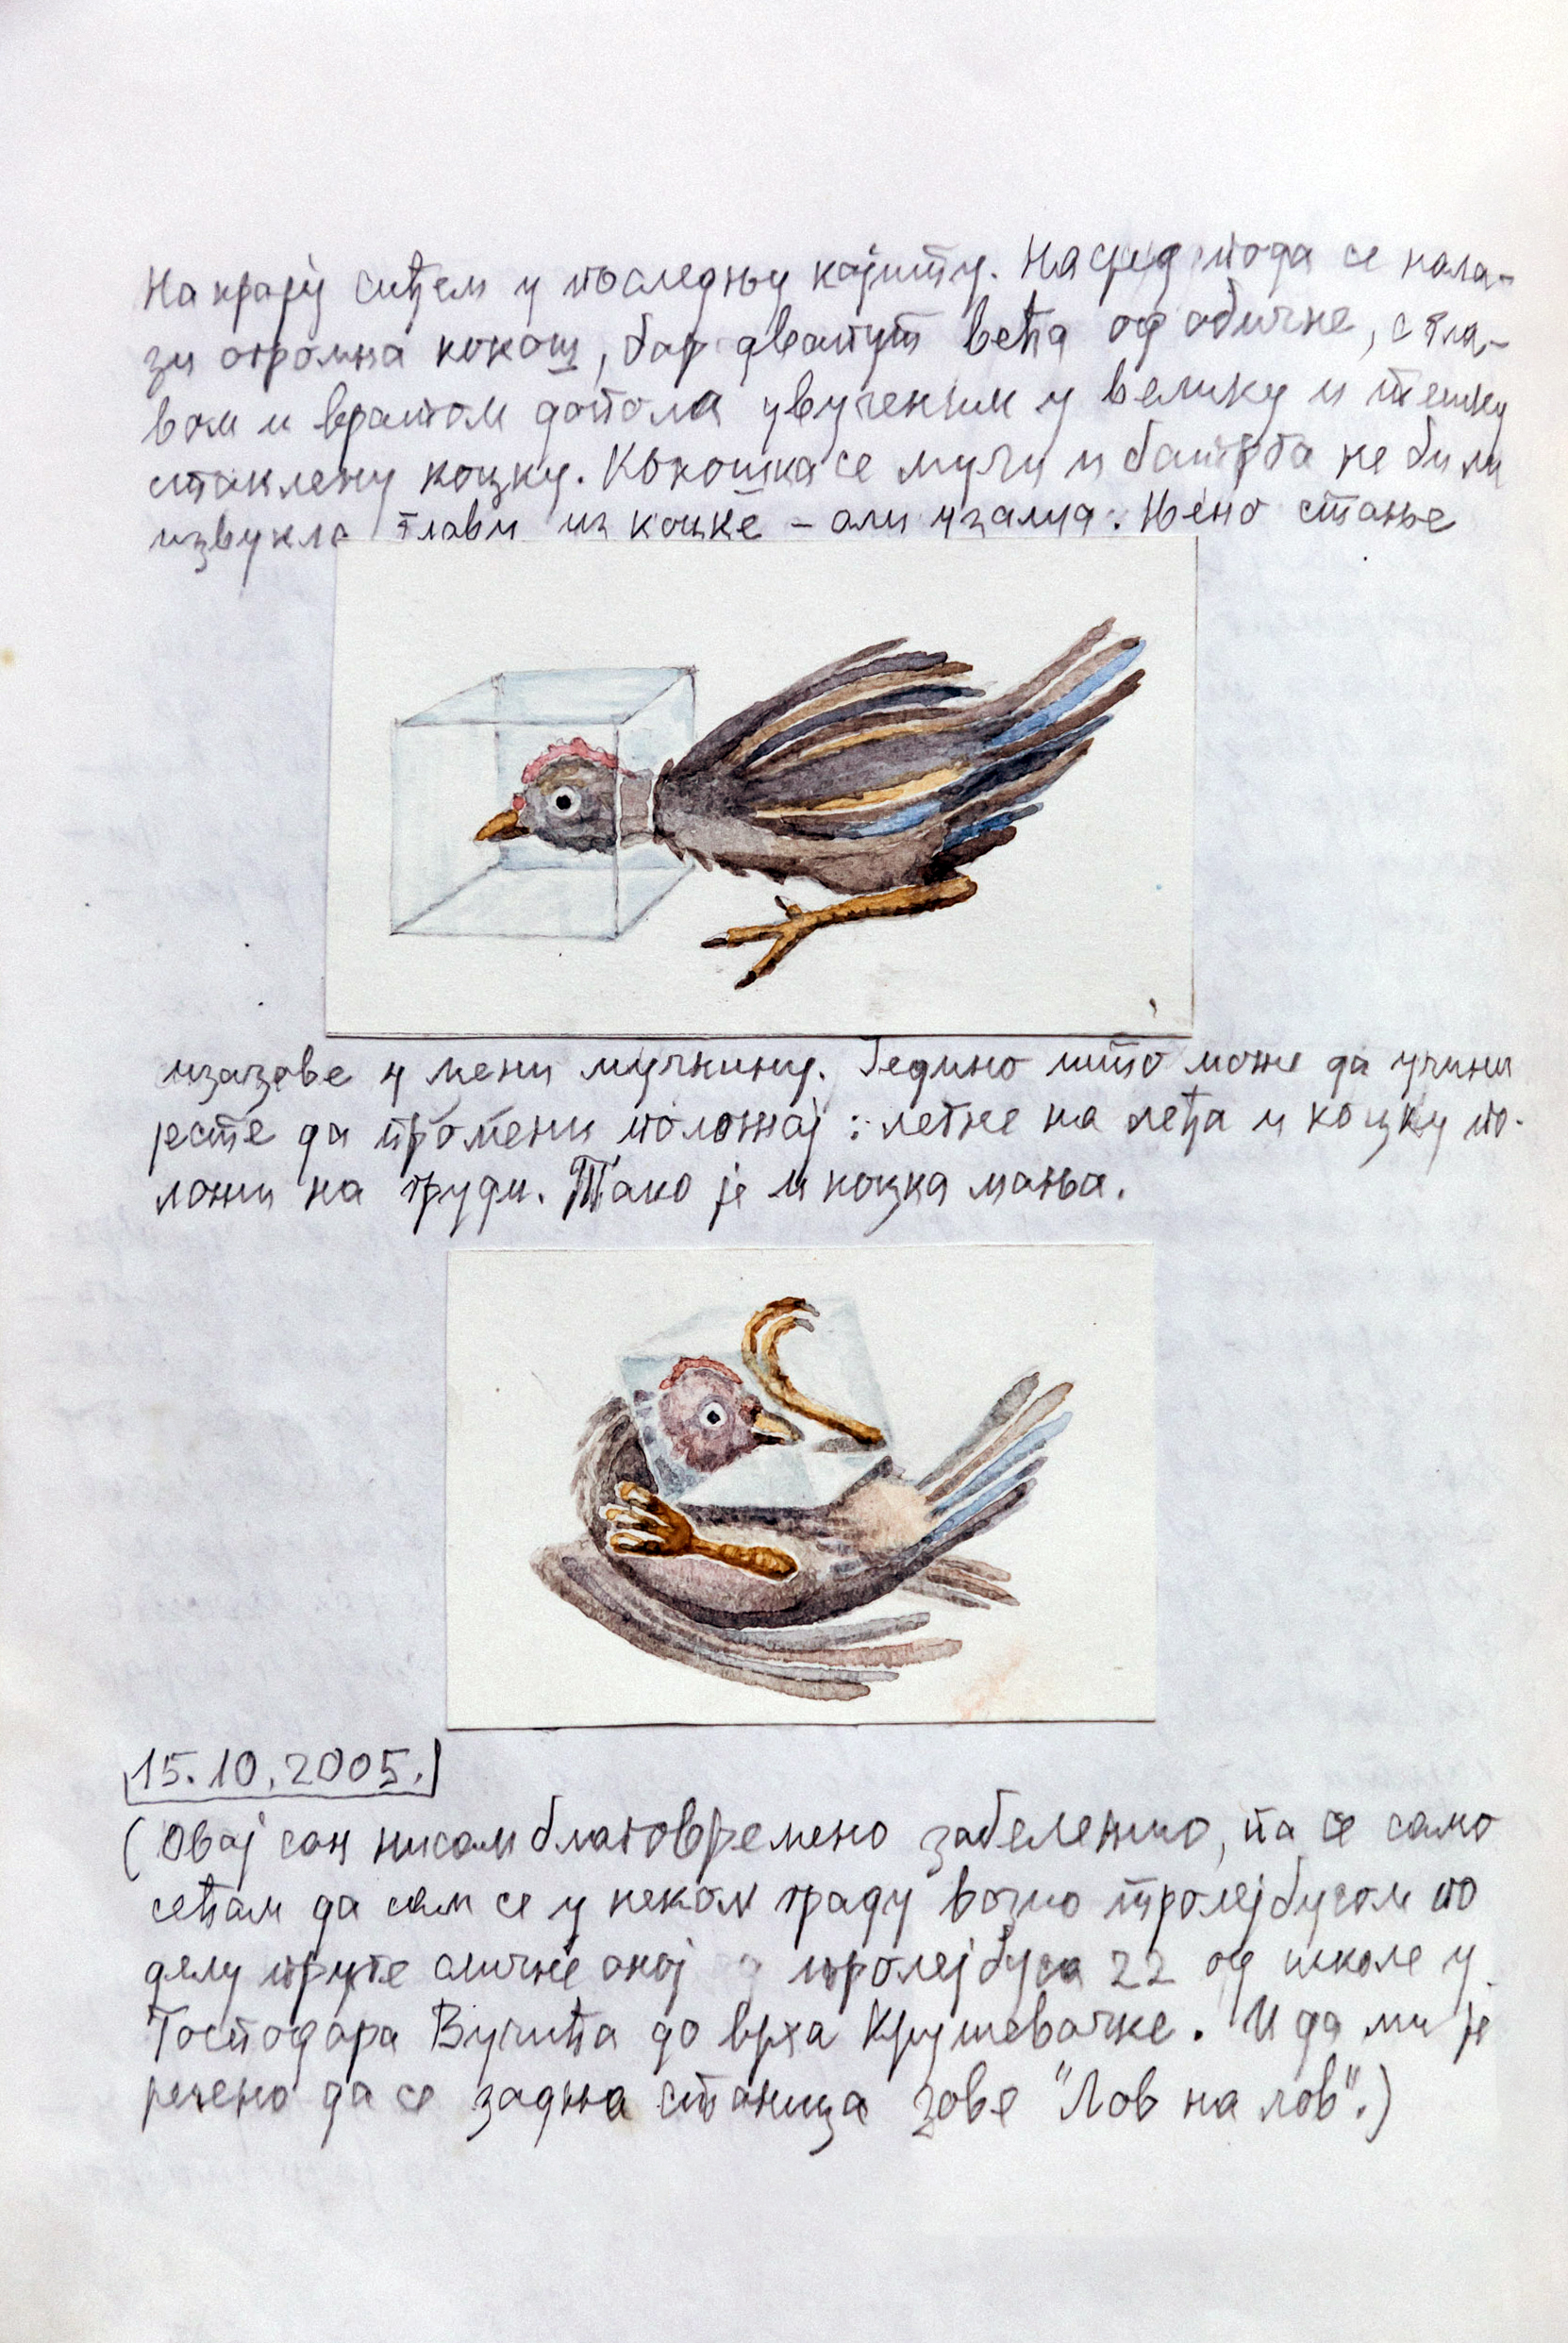 На крају сиђем у последњу кајиту. Насред пода се нала-
зи огромна кокош, бар двапут већа од обичне, с гла-
вом и вратом допола увученим у велику и тешку
стаклену коцку. Кокошка се мучи и батрга не би ли
извукла главу из коцке – али узалуд. Њено стање
изазове у мени мучнину. Једино што може да учини
јесте да промени положај: легне на леђа и коцку по-
ложи на груди. Тако је и коцка мања.
15.10.2005.
(Овај сан нисам благовремено забележио, па се само
сећам да сам се у неком граду возио тролејбусом по
делу пруге сличне оној тролејбуса 22 од школе у
Господара Вучића до врха Крушевачке. И да ми је
речено да се задња станица зове "Лов на лов".)